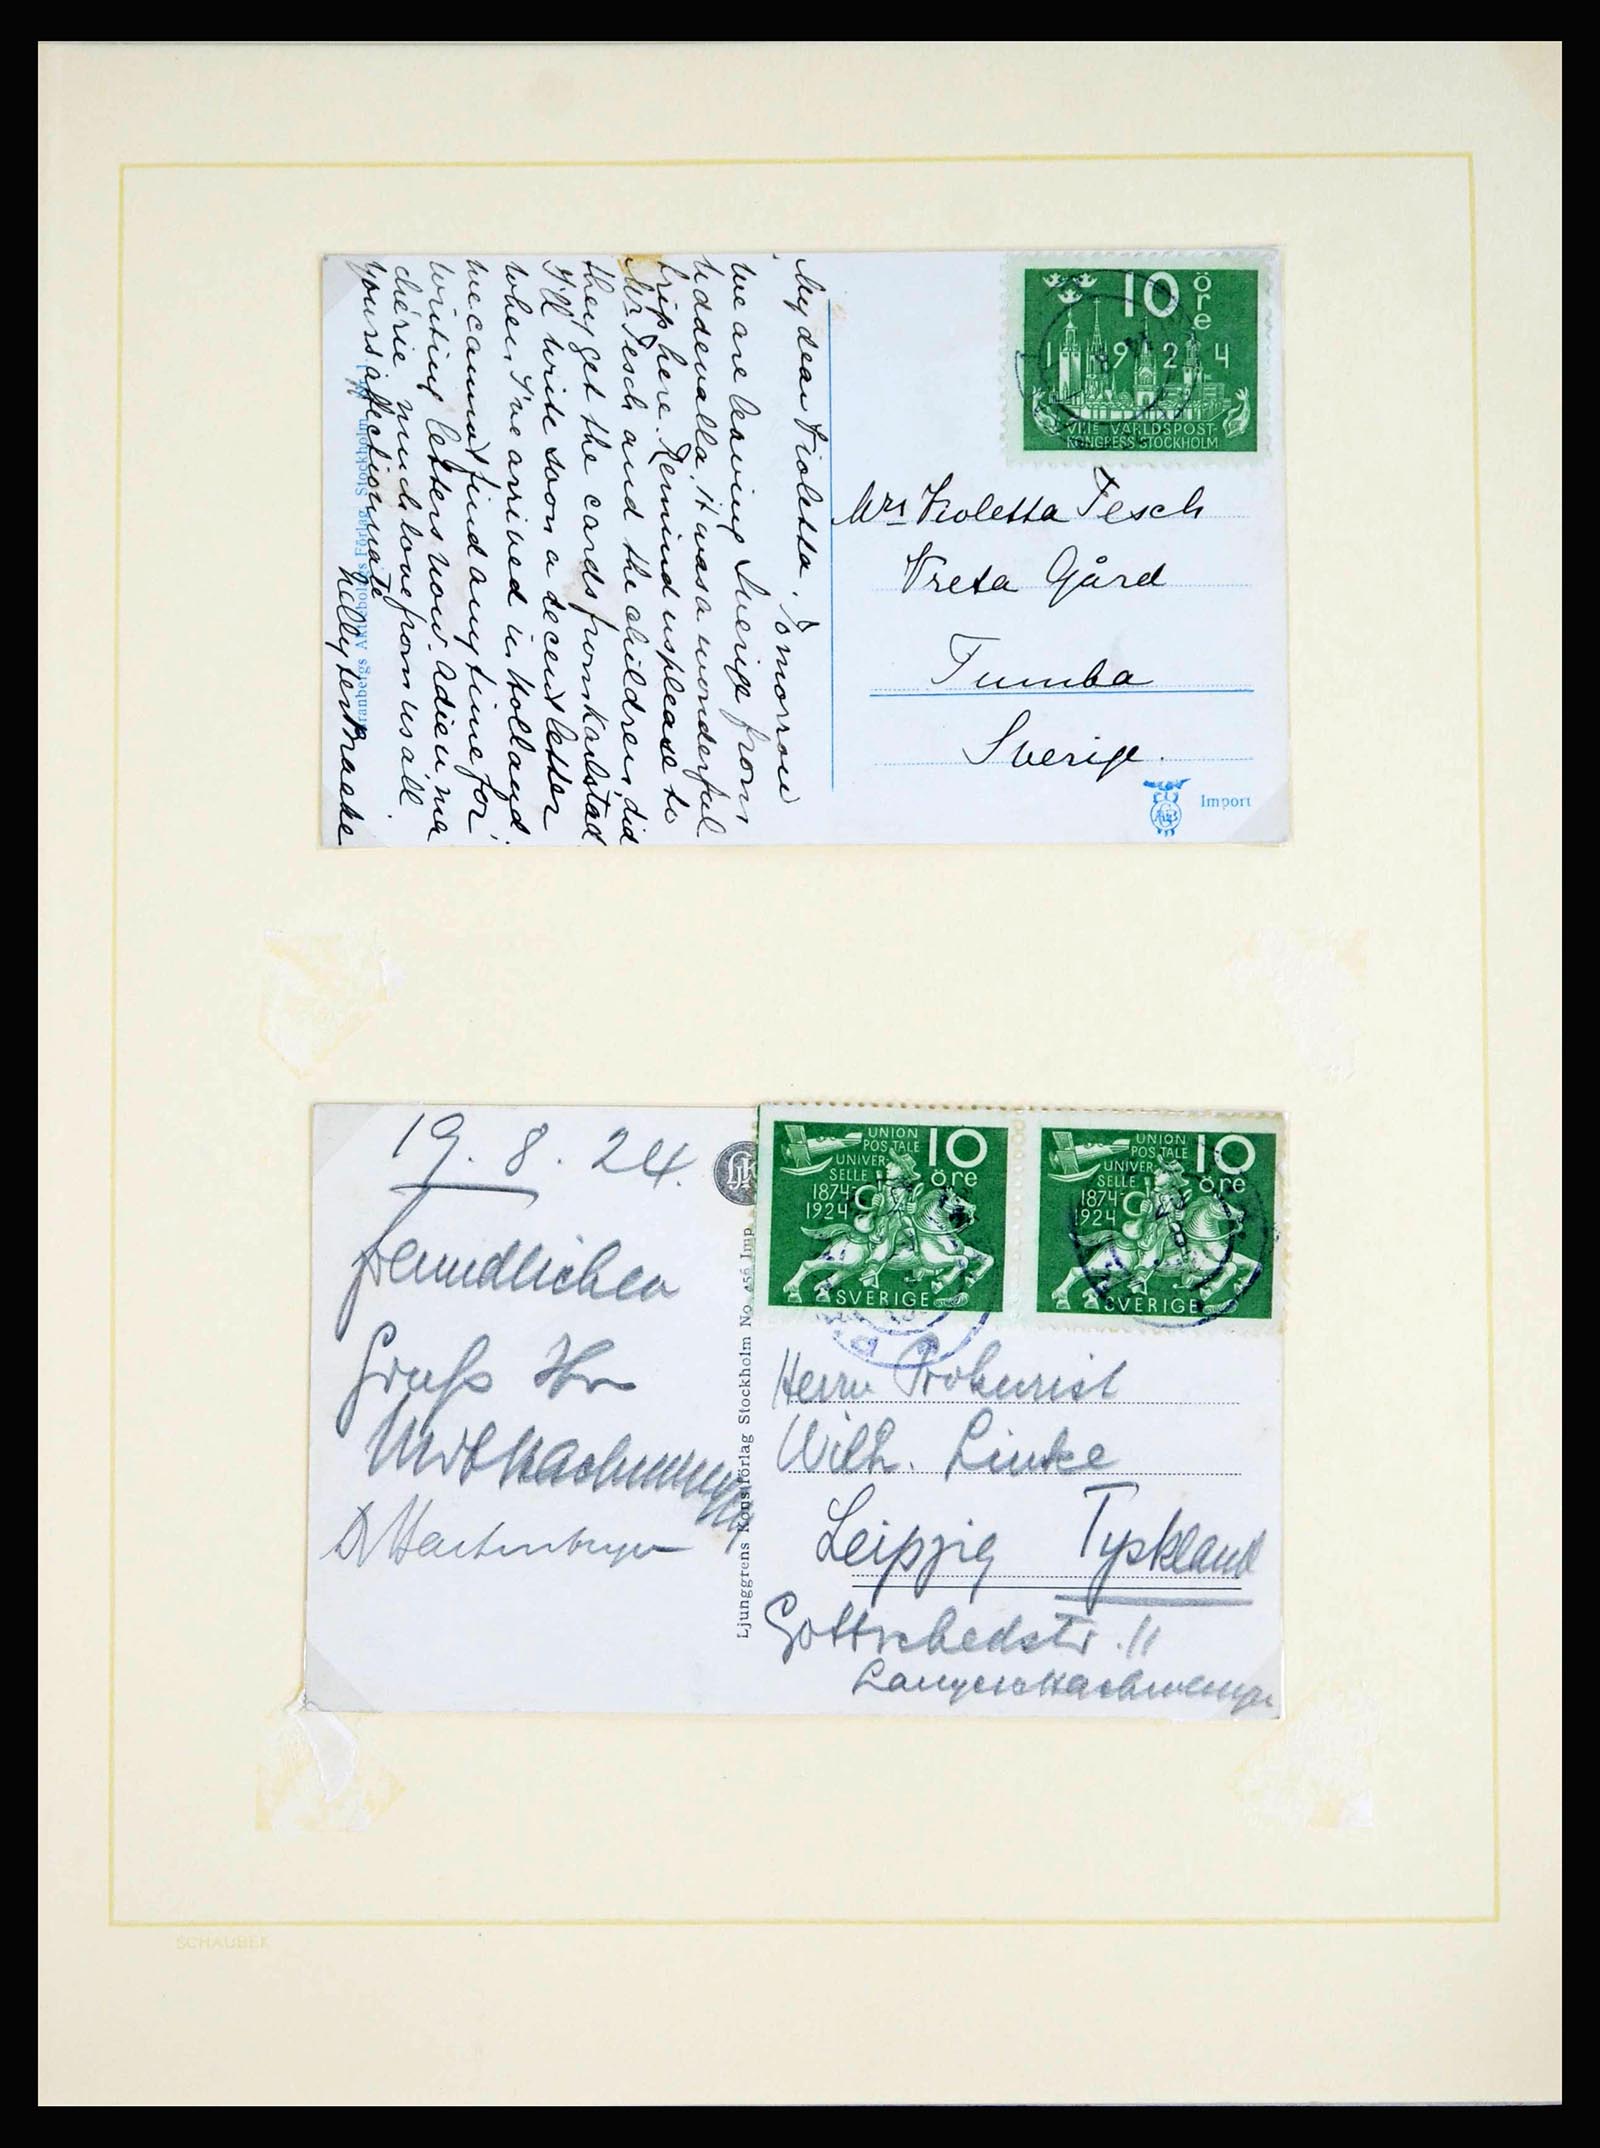 My dear Violetta. To morrow
we are leaving Sverige from
Uddevalla. It was a wonderful
trip here. Remind us please to
Mr Tesch and the children, did
they get the cards from Karlstad
I'll write soon a decent letter
when I've arrived in Holland.
we cannot find any time for
writing letters now. Adieu ma
chérie much love from us all.
yours affectionnate
Nelly ter
Granbergs Aktiebolags Förlag Stockholm
10 öre
1924
VIIIE VÄRLDSPOST-
KONGRESS STOCKHOLM
Mrs Violetta Tesch
Vreta Gård
Tumba
Sverige.
Import
19.8.24.
freundlichen
Gruß Ihr
Ljunggrens Konstförlag Stockholm No. 456 Imp
UNION
POSTALE
UNIVER-
SELLE
1874-
1924
10
öre
SVERIGE
UNION
POSTALE
UNIVER-
SELLE
1874-
1924
10
öre
SVERIGE
Herrn Prokurist
Wilh. Linke
Leipzig Tyskland
Gottschedstr. 11
SCHAUBEK